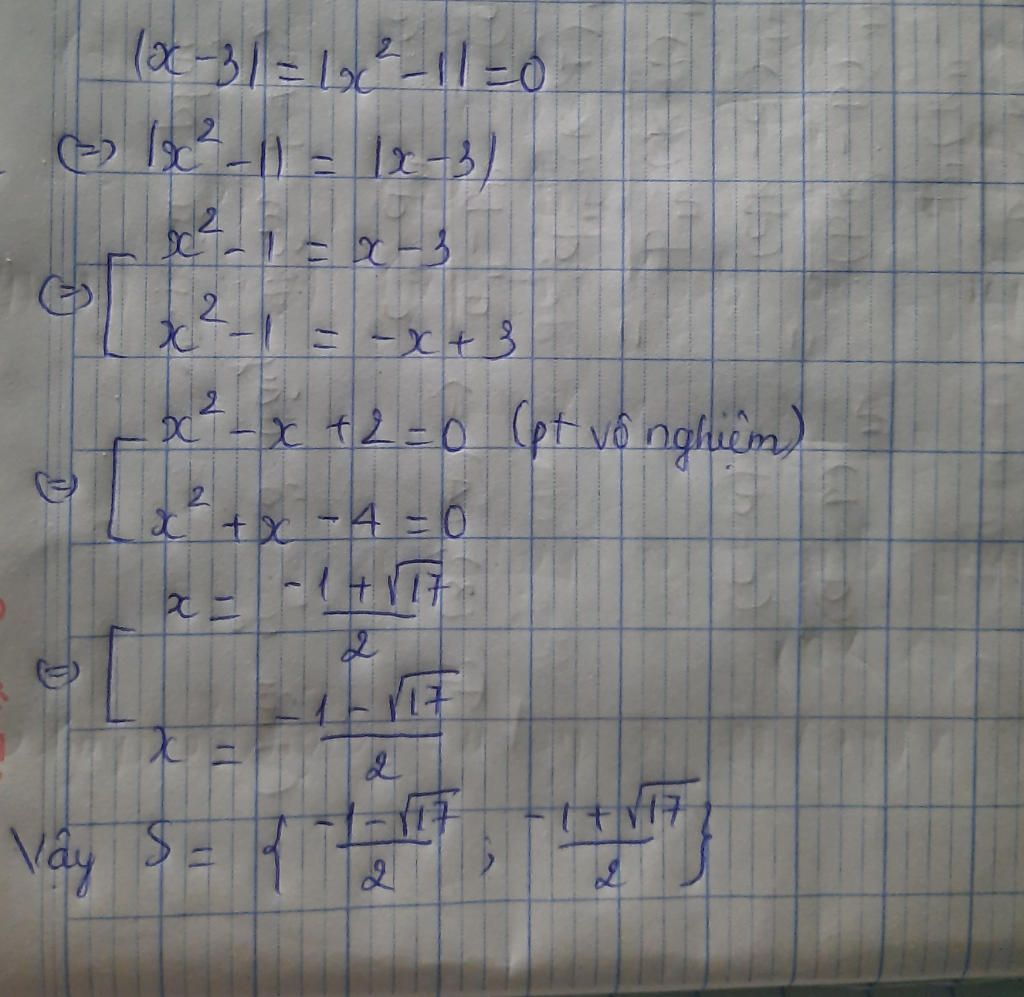 |x-3| = |x² - 1| = 0
(=) |x² - 1| = |x - 3|
(=) [ x² - 1 = x - 3
x² - 1 = -x + 3
(=) [ x² - x + 2 = 0 (pt vô nghiệm)
x² + x - 4 = 0
(=) [ x = (-1 + √17)/2
x = (-1 - √17)/2
Vậy S = { (-1 - √17)/2 ; (-1 + √17)/2 }